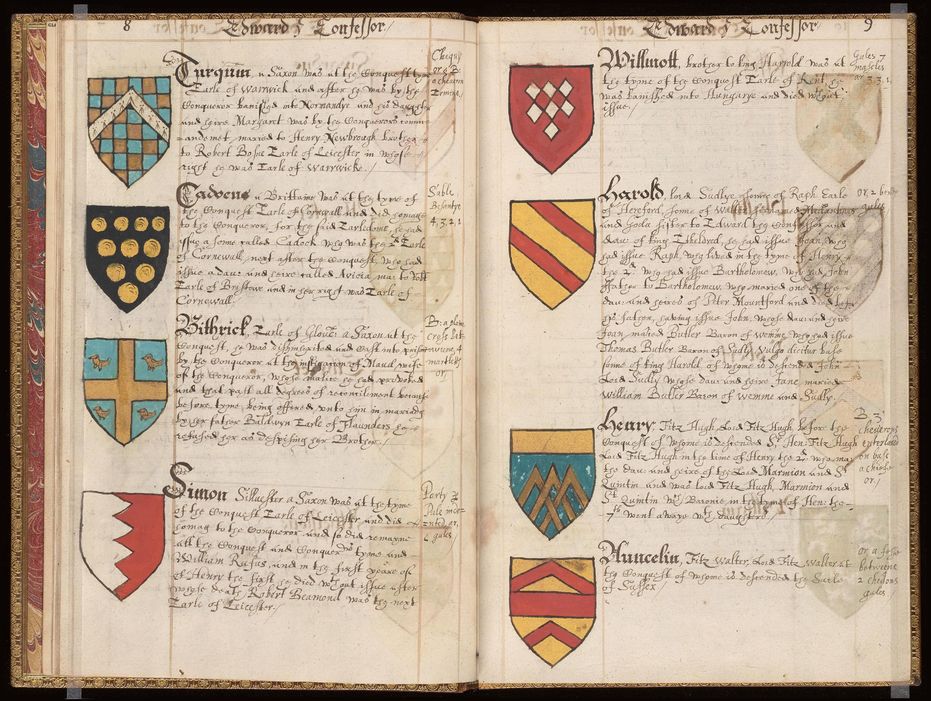 8 Edward ye Confessor /
Turquin a Saxon was at the Conquest tyme
Earle of Warwick and after he was by the
Conqueror banished into Normandye and his daughter
and heire Margaret was by the Conquerors comm-
andemet, maried to Henry Newbrough brother
to Robert Earle of Leicester in whose
right he was Earle of Warwicke. /
Chequy
or & B
a cheveron
Ermine
Cadoens a Brittaine was at the tyme of
the Conquest Earle of Cornwall and did homage
to the Conqueror, for the said Earledome, he had
issue a sonne called Cadock who was the 2d Earle
of Cornewall, next after the Conquest, who had
issue a daur and heire called Avicia
Earle of Bristowe and in her right was Earle of
Cornewall.
Sable
Besantye
4, 3, 2, 1
Bithrick Earle of Glouer a Saxon at the
Conquest, he was disinherited and cast into prison
by the Conqueror at the instigation of Maud wife
of the Conqueror, whose malice he had provoked
and that past all degrees of reconcilement because
before tyme being offered unto him in mariadge
by her father Baldwyn Earle of Flaunders he
refused her
B: a plain
cross
or,
Simon Silluester a Saxon was at the tyme
of the Conquest Earle of Leicester and did
homag to the Conqueror and so did remayne
all the Conquest and Conquerors tyme and
William Rufus, and in the first yeare of
of Henry the first he died without issue after
whose death Robert Beamond was the next
Earle of Leicester.
Party p
Pale
or,
& gules
Edward ye Confessor / 9
Willmott, brother to king Harrold was at
the tyme of the Conquest Earle of Kent he
was banished into Hungarye and died without
issue
Gules 7
mascles
or 3, 3, 1.
Harold, lord Sudlye sonne of Raph Earle
of Hereford, sonne of
and Goda sister to Edward the Confessor and
daur of king Ethelred, he had issue John, who
had issue Raph, who lived in the tyme of Henry
the 2d who had issue Bartholomew, who had John
ffather to Bartholomew, who maried one of the
daurs and heires of Peter Mountford and died before
his father, having issue John, whose daur and heire
Joan, maried Butler Baron of Wemme who had issue
Thomas Butler Baron of Sudly vulgo dictus base
sonne of king Harold, of whome is descended John
Lord Sudly whose daur and heire Jane maried
William Butler Baron of Wemme and Sudly.
or, 2 bends
gules
Henry, Fitz Hugh, Lord Fitz Hugh before the
Conquest of whome is descended Sr Hen: Fitz Hugh
Lord Fitz Hugh in the time of Henry the 2d who mar
the daur and heire of the Lord Marmion and St
Quintin, and was Lord Fitz Hugh, Marmion and
St Quintin wch Baronie in the tyme of Hen: the
7th went awaye wth daughters
B 3
cheverons
enterlaced
on base
a chiefe
or /
Auncelin, Fitz Walter, Lord Fitz Walter at
the Conquest of whome is descended the Earle
of Sussex /
or, a fesse
betweene
2 cheverons
gules